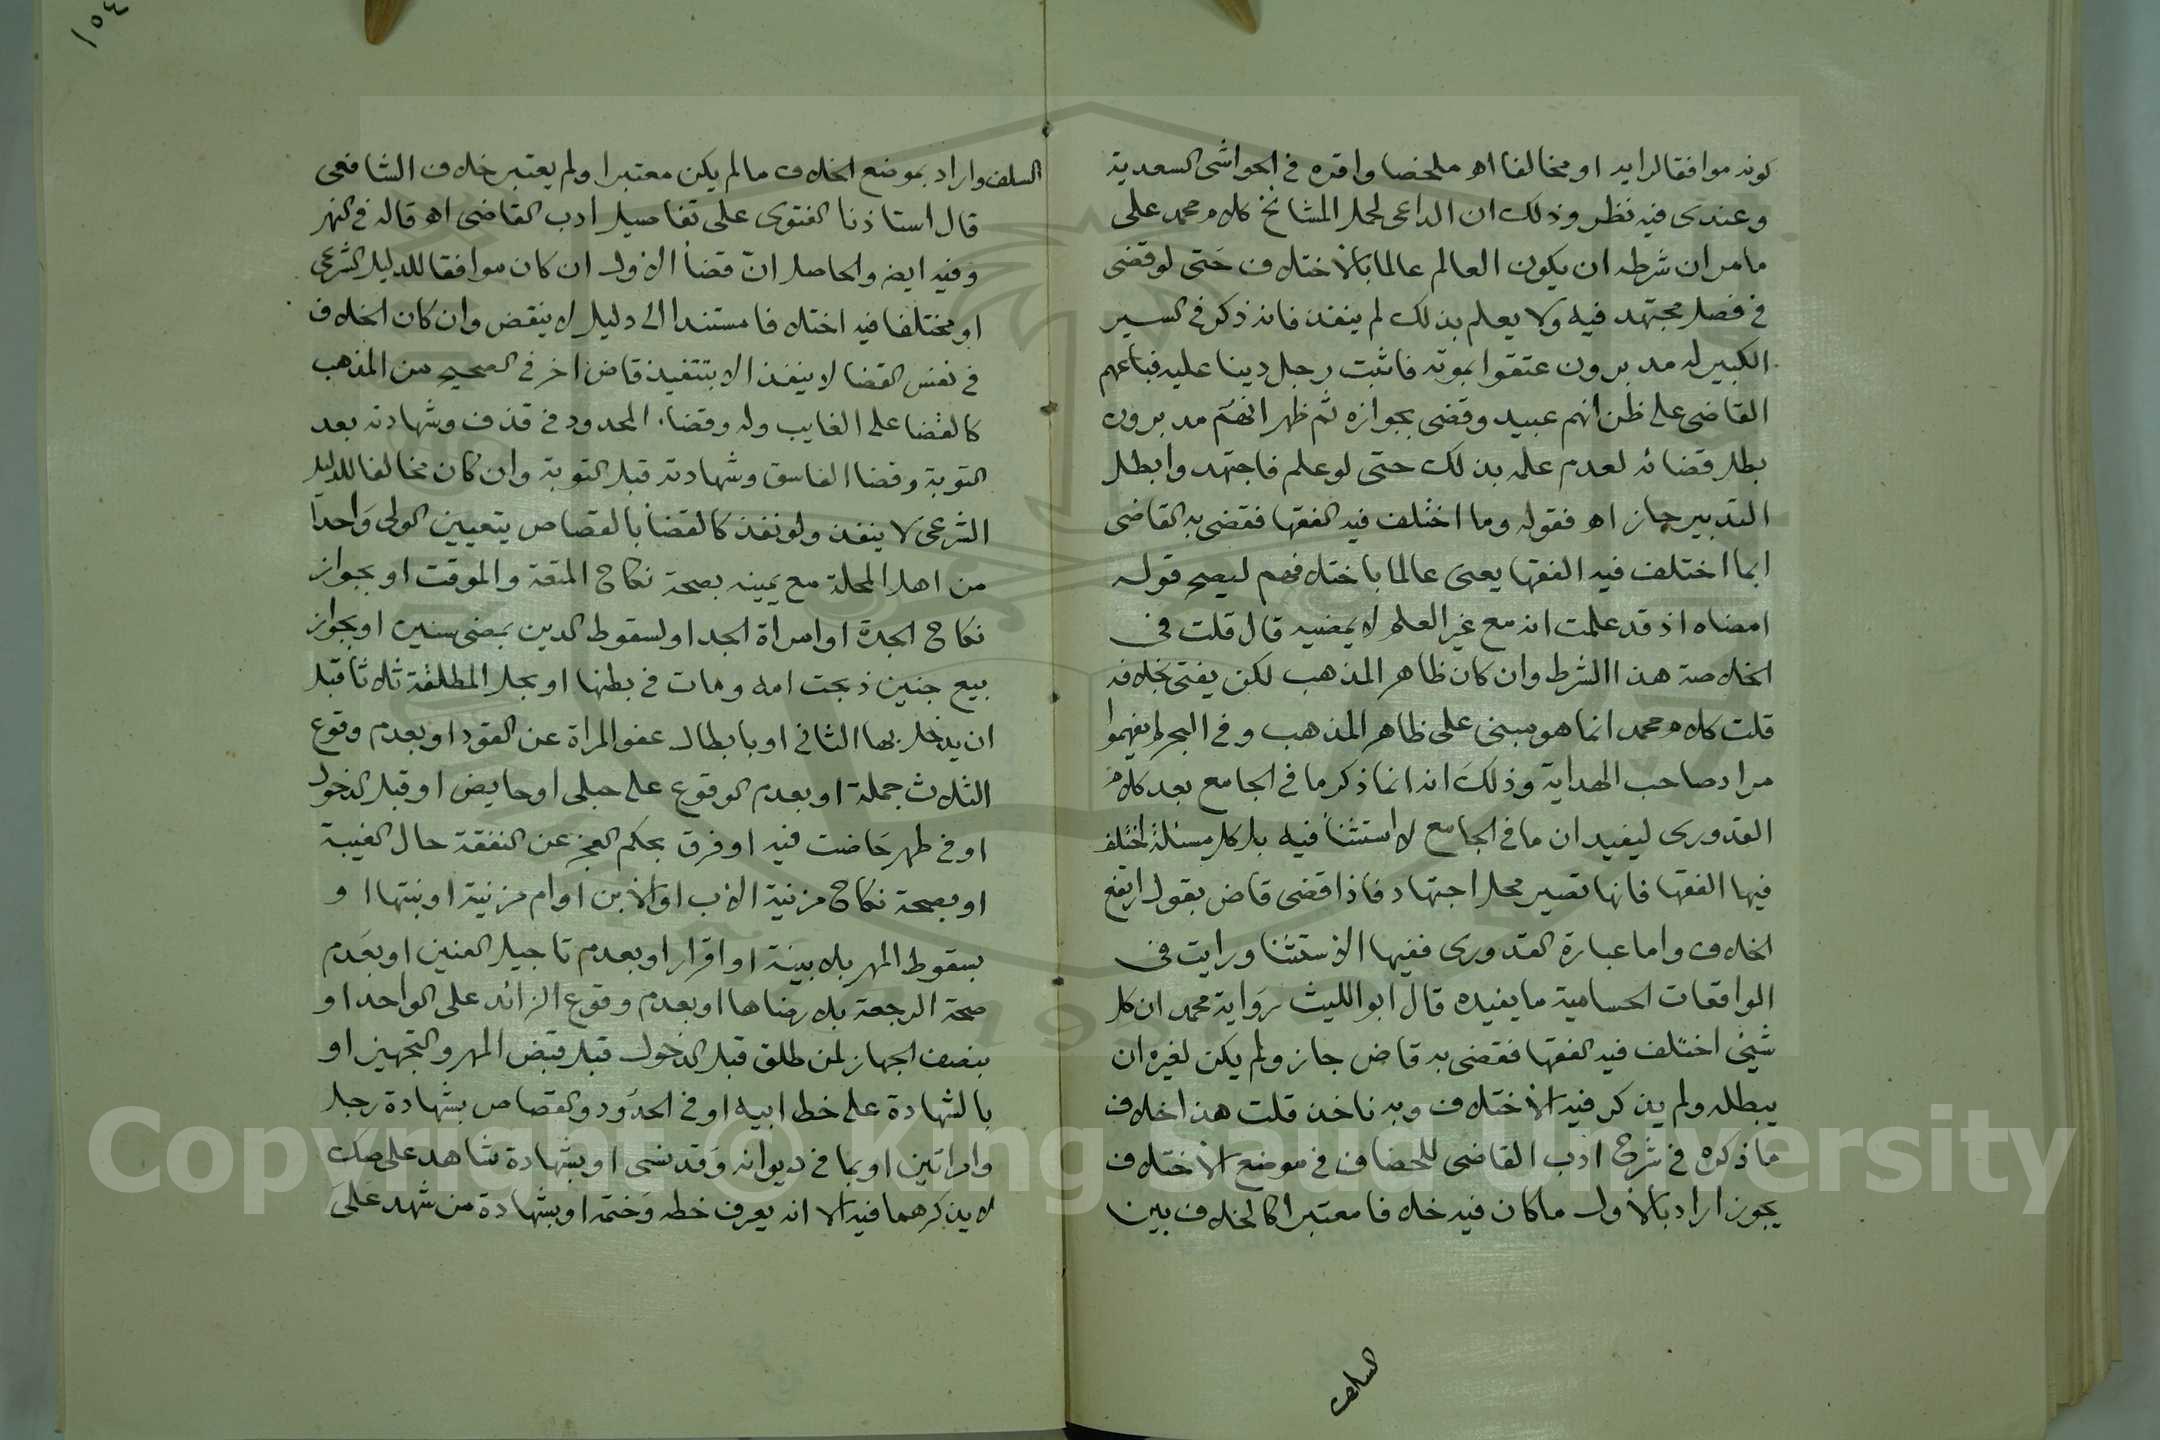 كونه موافقا لرايه او مخالفا اه ملخصا واقره في الحواشي السعدية
وعندي فيه نظر وذلك ان الداعي لحمل المشائخ كلام محمد على
ما مر ان شرطه ان يكون العالم عالما بالاختلاف حتى لو قضى
في فصل مجتهد فيه ولا يعلم بذلك لم ينفذ فانه ذكر في السير
الكبير له مدبرون عتقوا بموته فاثبت رجل دينا عليه فباعهم
القاضي على ظن انهم عبيد وقضى بجوازه ثم ظهر انهم مدبرون
بطل قضائه لعدم علمه بذلك حتى لو علم فاجتهد وابطل
التدبير جاز اه فقوله وما اختلف فيه الفقها فقضى به القاضي
ابما اختلف فيه الفقها يعني عالما باختلافهم ليصح قوله
امضاه اذ قد علمت انه مع غير العلم لا يمضيه قال قلت في
الخلاصة هذا الشرط وان كان ظاهر المذهب لكن يفتى بخلافه
قلت كلام محمد انما هو مبنى على ظاهر المذهب وفي البحر لم يفهموا
مراد صاحب الهداية وذلك انه انما ذكر ما في الجامع بعد كلام
القدورى ليفيد ان ما في الجامع لا استثنا فيه بل كل مسئلة اختلف
فيها الفقها فانها تصير محل اجتهاد فاذا قضى قاض بقول ارتفع
الخلاف واما عبارة القدورى ففيها الاستثنا ورايت في
الواقعات الحسامية ما يفيده قال ابو الليث رواية محمد ان كل
شيئ اختلف فيه الفقها فقضى به قاض جاز ولم يكن لغيره ان
يبطله ولم يذكر فيه الاختلاف وبه ناخذ قلت هذا خلاف
ما ذكره في شرح ادب القاضي للخصاف في موضع الاختلاف
يجوز اراد بالاول ما كان فيه خلافا معتبرا كالخلاف بين
السلف
١٥٤
السلف واراد بموضع الخلاف ما لم يكن معتبرا ولم يعتبر خلاف الشافعي
قال استاذنا الفتوى على تفاصيل ادب القاضي اه قاله في النهر
وفيه ايض والحاصل ان قضأ الاول ان كان موافقا للدليل الشرعي
او مختلفا فيه اختلافا مستندا الى دليل لا ينقض وان كان الخلاف
في نفس القضا لا ينفذ الا بتنفيذ قاض اخر في الصحيح من المذهب
كالقضا على الغايب وله وقضاء المحدود في قذف وشهادته بعد
التوبة وقضا الفاسق وشهادته قبل التوبة وان كان مخالفا للدليل
الشرعي لا ينفذ ولو نفذ كالقضأ بالقصاص بتعيين الولى واحدا
من اهل المحلة مع يمينه بصحة نكاح المتعة والموقت او بجواز
نكاح الجدة او امراة الجد او لسقوط الدين بمضى سنين او بجواز
بيع جنين ذبحت امه ومات في بطنها او بحل المطلقة ثلاثا قبل
ان يدخل بها الثاني او بابطال عفو المراة عن القود او بعدم وقوع
الثلاث جملة او بعدم الوقوع على حبلى او حايض او قبل الدخول
او في طهر حاضت فيه او فرق بحكم العجز عن النفقة حال الغيبة
او بصحة نكاح مزنية الاب او الابن او ام مزنية او بنتها او
بسقوط المهر بلا بينة او اقرار او بعدم تاجيل العنين او بعدم
صحة الرجعة بلا رضاها او بعدم وقوع الزائد على الواحد او
بنصف الجهاز لمن طلق قبل الدخول قبل قبض المهر والتجهيز او
بالشهادة على خط ابيه او في الحدود والقصاص بشهادة رجل
وامراتين او بما في ديوانه وقد نسى او بشهادة شاهد على صك
لا يذكر هما فيه الا انه يعرف خطه وختمه او بشهادة من شهد على
Copyright © King Saud University